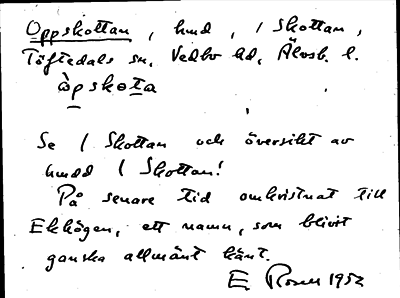 Oppskottan, hmd, / Skottan,
Töftedals sn, Vedbo hd, Älvsb. l.
åpskota
Se / Skottan och översikt av
hmdd / Skottan!
På senare tid omkristnat till
Ekhögen, ett namn, som blivit
ganska allmänt känt.
E Rosen 1952